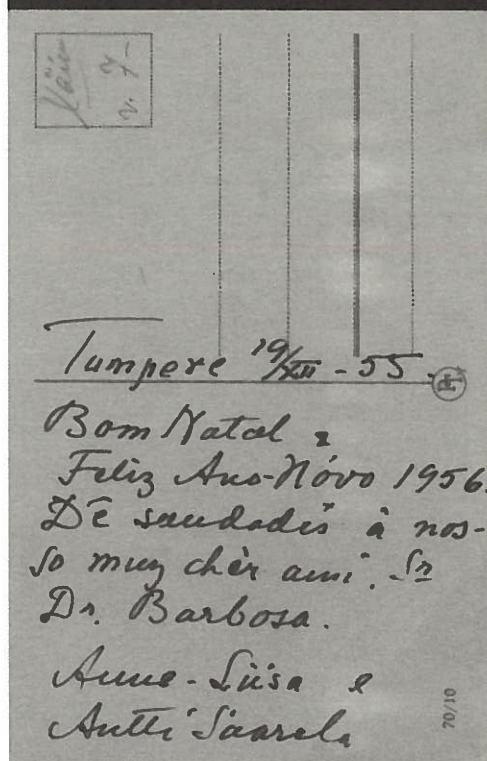 Tampere 19/XII - 55.
Bom Natal e
Feliz Ano-Nóvo 1956.
Dê saudadis à nos-
so muy chèr ami. Sr
Dr. Barbosa.
Anne-Liisa e
Antti Saarela
70/10